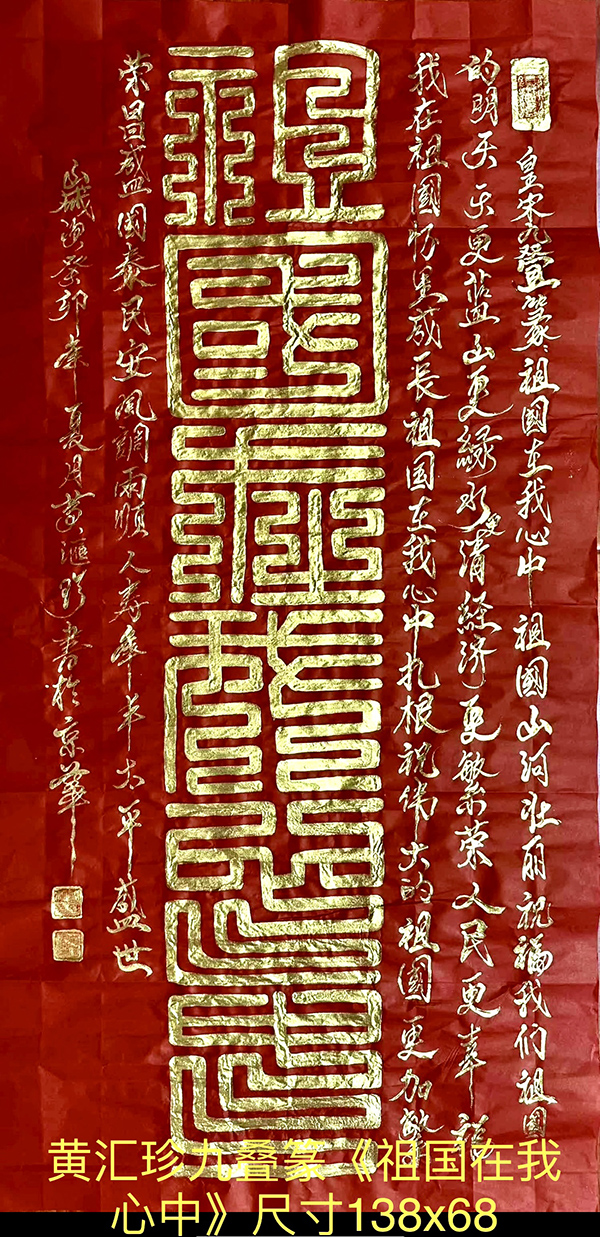 皇宋九叠篆祖國在我心中祖國山河壮丽祝福我们祖国
的明天天更蓝山更緑水更清經济更繁荣人民更幸福
我在祖国怀里成長祖国在我心中扎根祝伟大的祖国更加繁
祖國在我心中
荣昌盛国泰民安风調雨順人寿年丰太平盛世
癸卯年夏月黄滙珍書於京華
黄汇珍九叠篆《祖国在我
心中》尺寸138x68